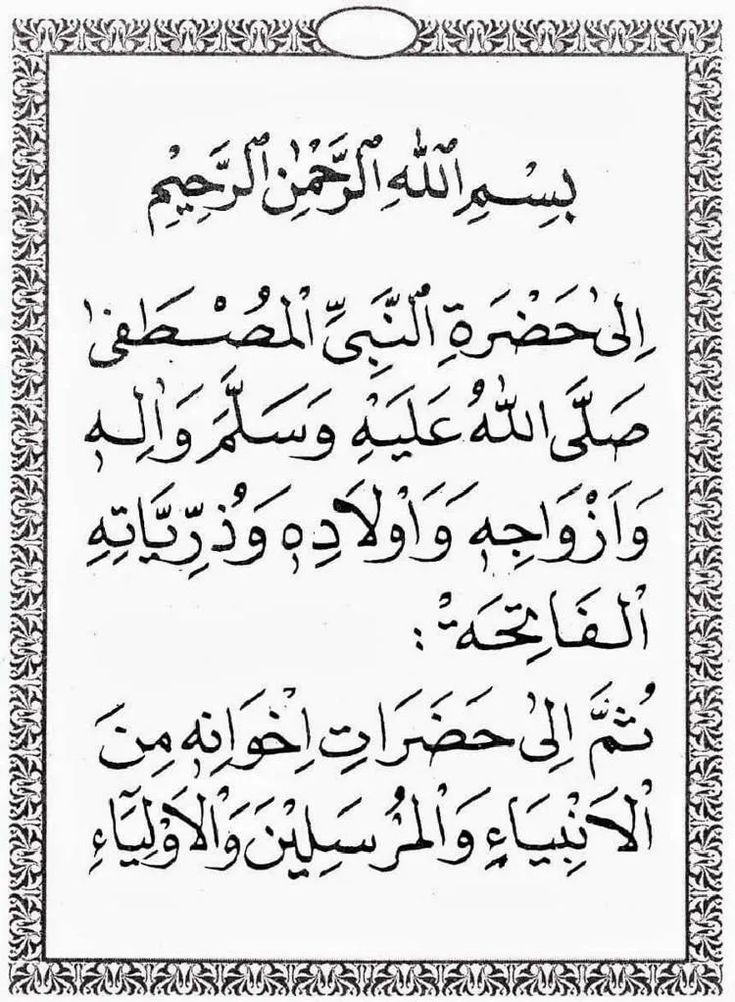 بِسْمِ اللهِ الرَّحْمٰنِ الرَّحِيْمِ
اِلىٰ حَضْرَةِ النَّبِيِّ الْمُصْطَفىٰ
صَلَّى اللهُ عَلَيْهِ وَسَلَّمَ وَاٰلِهٖ
وَاَزْوَاجِهٖ وَاَوْلَادِهٖ وَذُرِّيَّاتِهِ
الْفَاتِحَةْ :
ثُمَّ اِلىٰ حَضَرَاتِ اِخْوَانِهٖ مِنَ
الْاَنْبِيَاءِ وَالْمُرْسَلِيْنَ وَالْاَوْلِيَآءِ